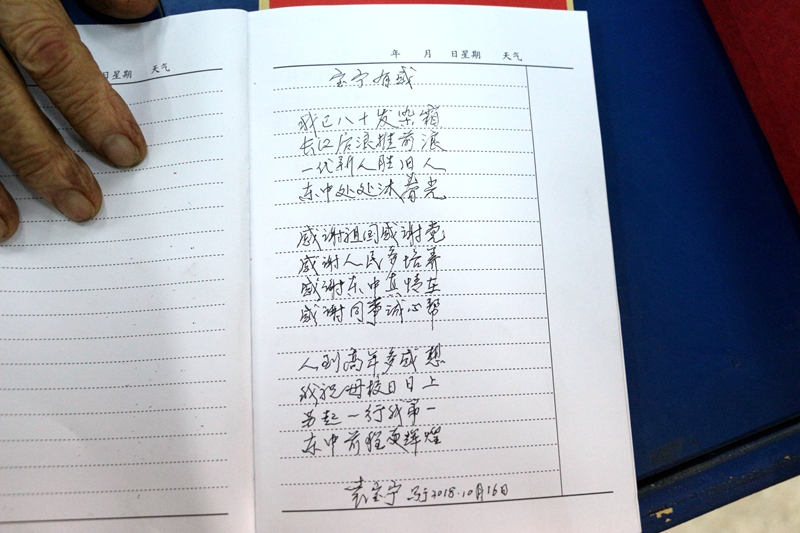 日星期 天气
年 月 日星期 天气
宝宁有感
我已八十发染霜
长江后浪推前浪
一代新人胜旧人
东中处处沐春光
感谢祖国感谢党
感谢人民多培养
感谢东中真情在
感谢同事诚心帮
人到高年多感想
我祝母校日日上
另起一行我第一
东中前程更辉煌
袁宝宁 写于2018.10月16日